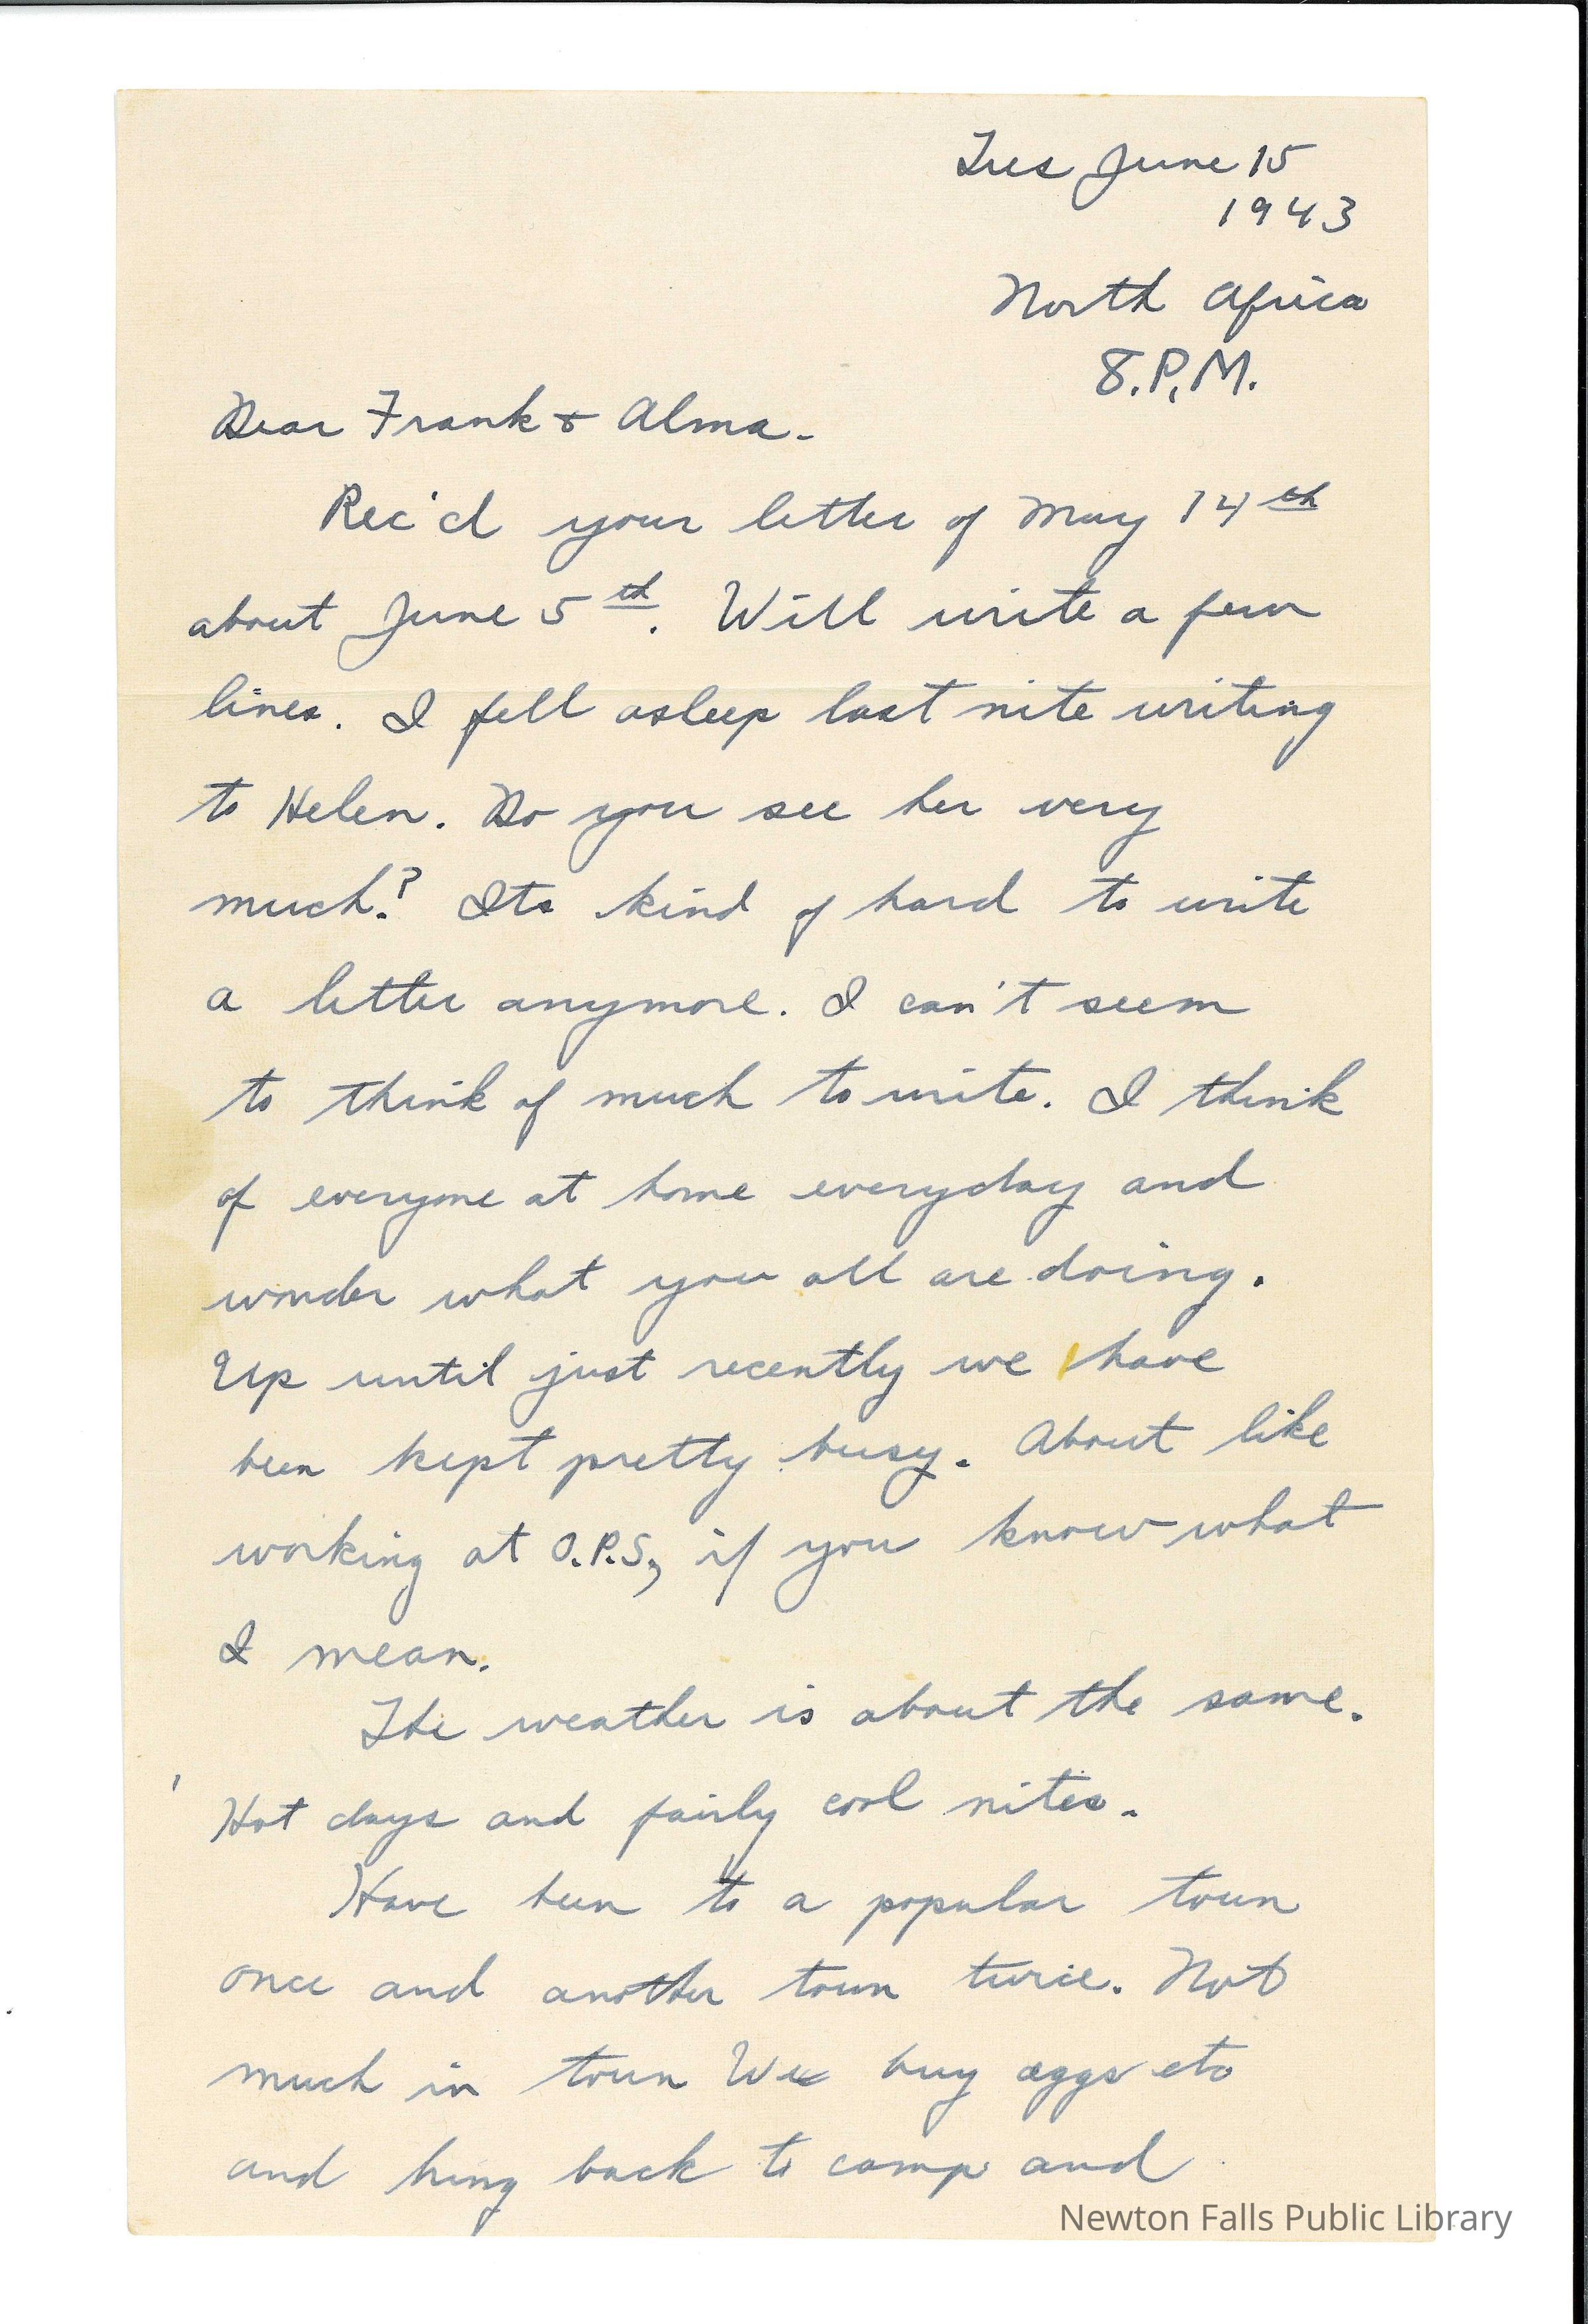 Tues June 15
1943
North Africa
8.P.M.
Dear Frank & Alma.
Rec'd your letter of May 14th
about June 5th. Will write a few
lines. I fell asleep last nite writing
to Helen. Do you see her very
much? Its kind of hard to write
a letter anymore. I can't seem
to think of much to write. I think
of everyone at home everyday and
wonder what you all are doing.
Up until just recently we have
been kept pretty busy. About like
working at O.P.S, if you know what
I mean.
The weather is about the same.
Hot days and fairly cool nites.
Have been to a popular town
once and another town twice. Not
much in town We buy eggs etc
and bring back to camp and
Newton Falls Public Library